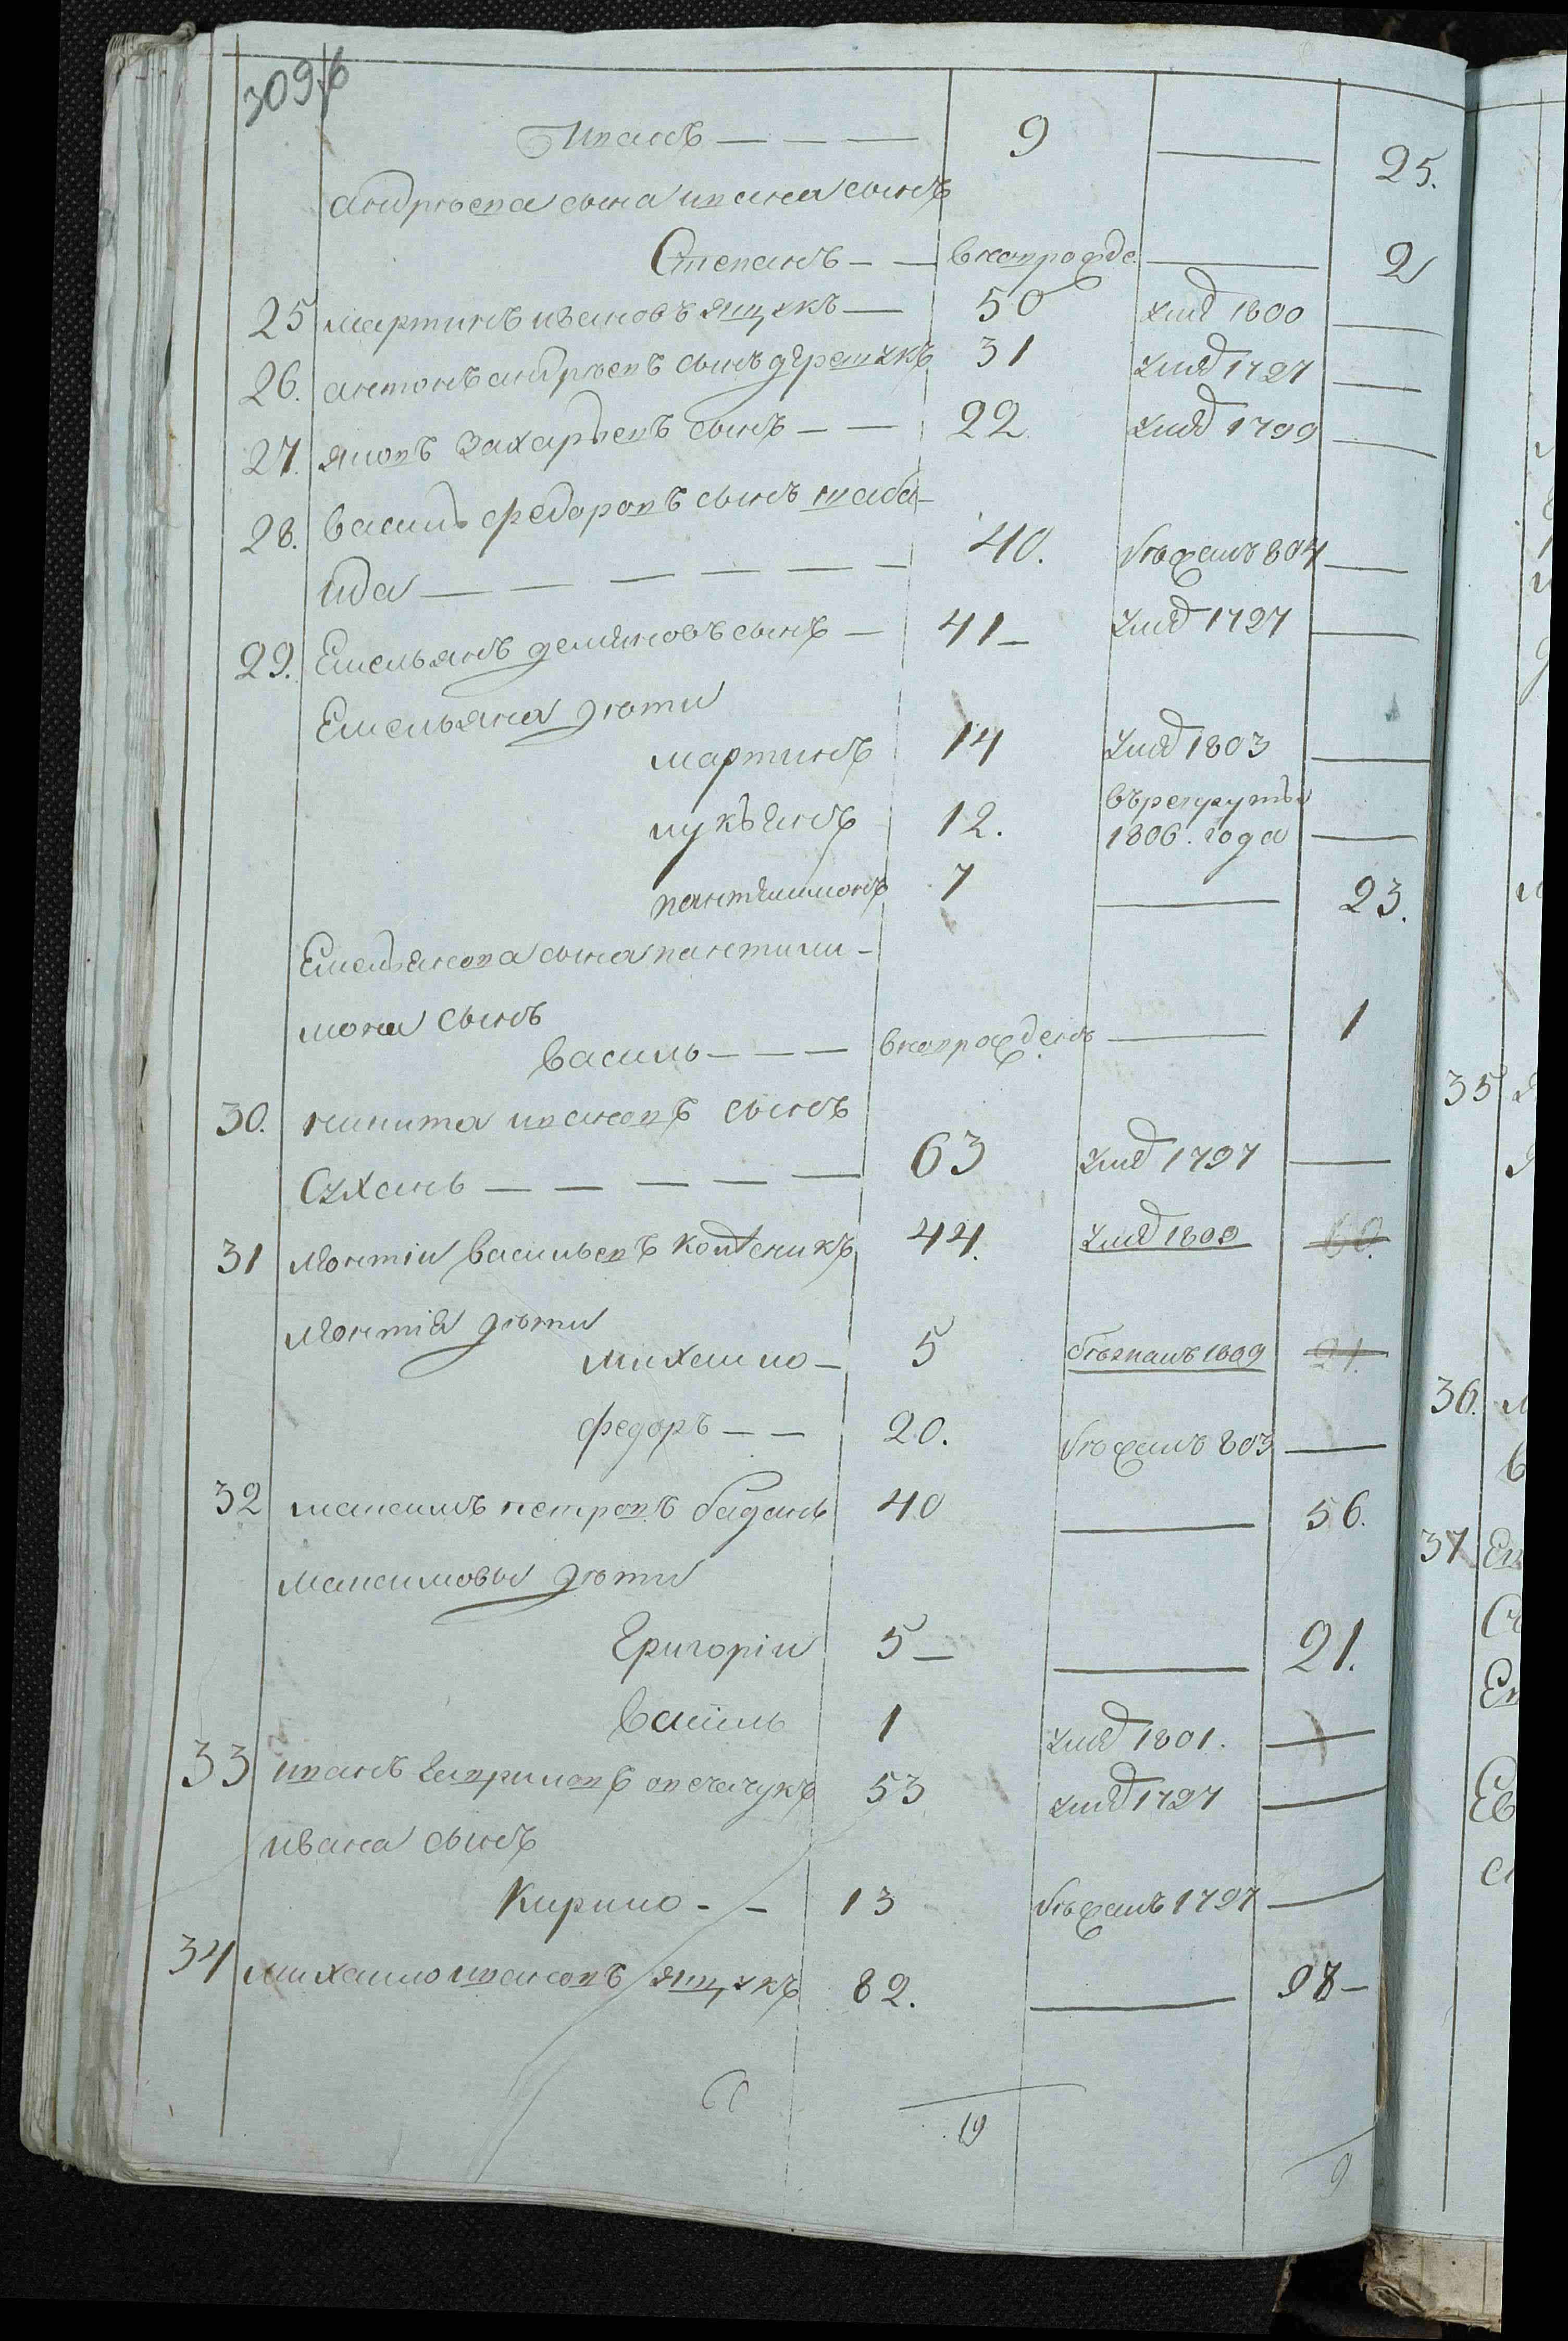 309 б
Иванъ — — — 9 — 25.
андрѣева сына ивана сынъ
Степанъ — — вновьрожде. — 2
25 мартинъ ивановъ ящукъ — 50 умѣ 1800 —
26. антонъ андрѣевъ сынъ 31 умѣ 1797 —
27. яковъ захарьевъ сынъ — — 22 умѣ 1799 —
28. василь федоровъ сынъ шаба-
лда — — — — — — 40. бѣжалъ 804 —
29. Емельянъ демяновъ сынъ — 41 — умѣ 1797 —
Емельяна дѣти
мартинъ 14 умѣ 1803 —
лукъянъ 12. въ рекруты
1806. года —
пантилимонъ 7 — 23.
Емельянова сына пантили-
мона сынъ
василь — — — вновьрожденъ — 1
30. никита ивановъ сынъ
Сухань — — — — — 63 умѣ 1797 —
31 Монтій васильевъ 44. умѣ 1809 60.
Монтія дѣти
михайло — 5 бѣжалъ 1809 21.
федоръ — — 20. бѣжалъ 803 —
32 максимъ петровъ баданъ 40 — 56.
максимовы дѣти
Григорій 5 — — 21.
василь 1 умѣ 1801. —
33 иванъ гавриловъ 53 умѣ 1797 —
ивана сынъ
Кирило - — 13 бѣжалъ 1797 —
34 михайло ивановъ ящукъ 82. — 98 —
19 9
35
36.
37